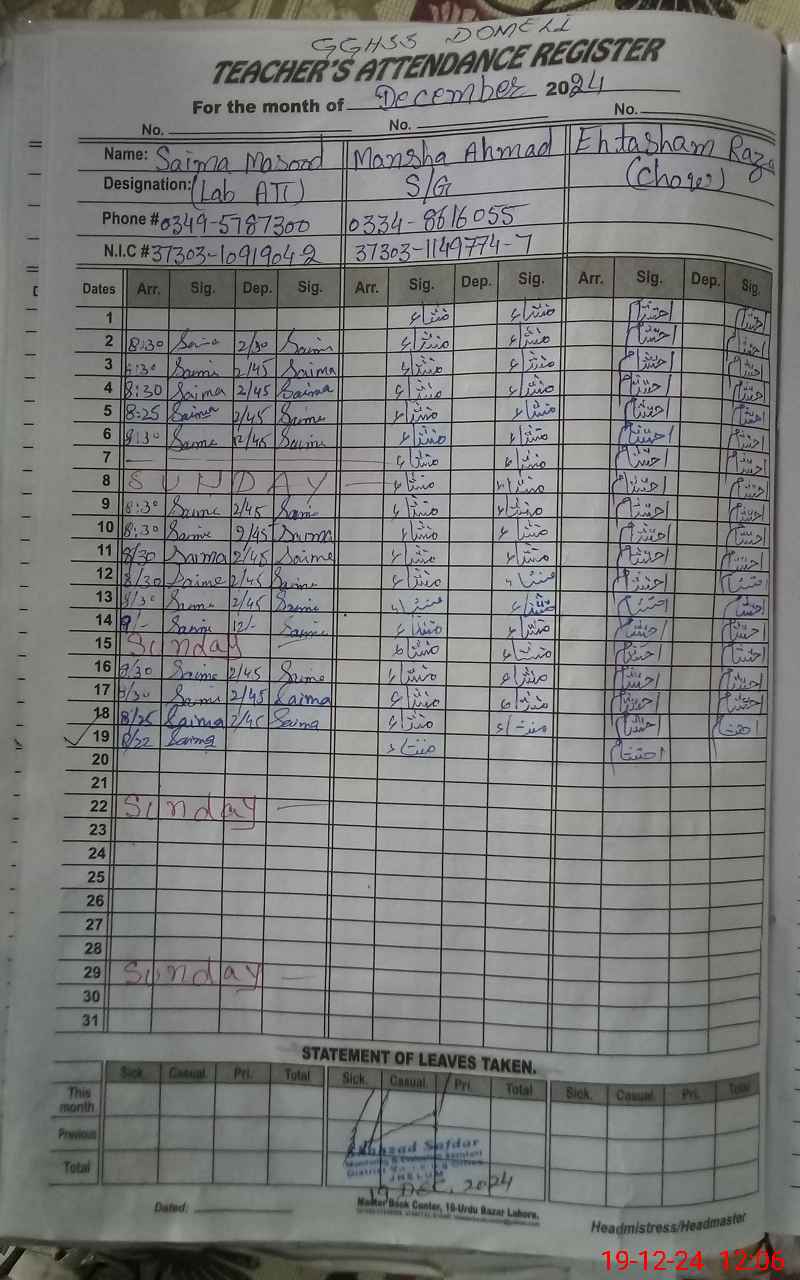 GGHSS DOMELI
TEACHER'S ATTENDANCE REGISTER
For the month of December 2024
No. No. No.
Name: Saima Masood Mansha Ahmad Ehtasham Raza
Designation: (Lab ATT) S/G
Phone # 0349-5787300 0334-8616055
N.I.C # 37303-1091904-2 37303-1149774-7
Dates Arr. Sig. Dep. Sig. Arr. Sig. Dep. Sig. Arr. Sig. Dep. Sig.
1 منشاء منشاء احتشام احتشام
2 8:30 Saima 2/30 Saima منشاء منشاء احتشام احتشام
3 Saima 2/45 Saima منشاء منشاء احتشام احتشام
4 8:30 Saima 2/45 Saima منشاء منشاء احتشام احتشام
5 8:25 Saima 2/45 Saima منشاء منشاء احتشام احتشام
6 8:30 Saima 2/45 Saima منشاء منشاء احتشام احتشام
7 منشاء منشاء احتشام احتشام
8 SUNDAY منشاء منشاء احتشام احتشام
9 8:30 Saima 2/45 Saima منشاء منشاء احتشام احتشام
10 8:30 Saima 2/45 Saima منشاء منشاء احتشام احتشام
11 8/30 Saima 2/45 Saima منشاء منشاء احتشام احتشام
12 8/30 Saima 2/45 Saima منشاء منشاء احتشام احتشام
13 8/30 Saima 2/45 Saima منشاء منشاء احتشام احتشام
14 9/- Saima 12/- Saima منشاء منشاء احتشام احتشام
15 Sunday منشاء منشاء احتشام احتشام
16 8/30 Saima 2/45 Saima منشاء منشاء احتشام احتشام
17 8/30 Saima 2/45 Saima منشاء منشاء احتشام احتشام
18 8/25 Saima 2/45 Saima منشاء منشاء احتشام احتشام
19 8/22 Saima منشاء احتشام
20
21
22 Sunday
23
24
25
26
27
28
29 Sunday
30
31
STATEMENT OF LEAVES TAKEN.
Sick. Casual. Pri. Total Sick. Casual. Pri. Total Sick. Casual. Pri. Total
This month
Previous
Total
Safdar
Monitoring & Evaluation Assistant
JHELUM
19 DEC, 2024
Dated:
Master Book Center, 16-Urdu Bazar Lahore.
Headmistress/Headmaster
19-12-24 12:06